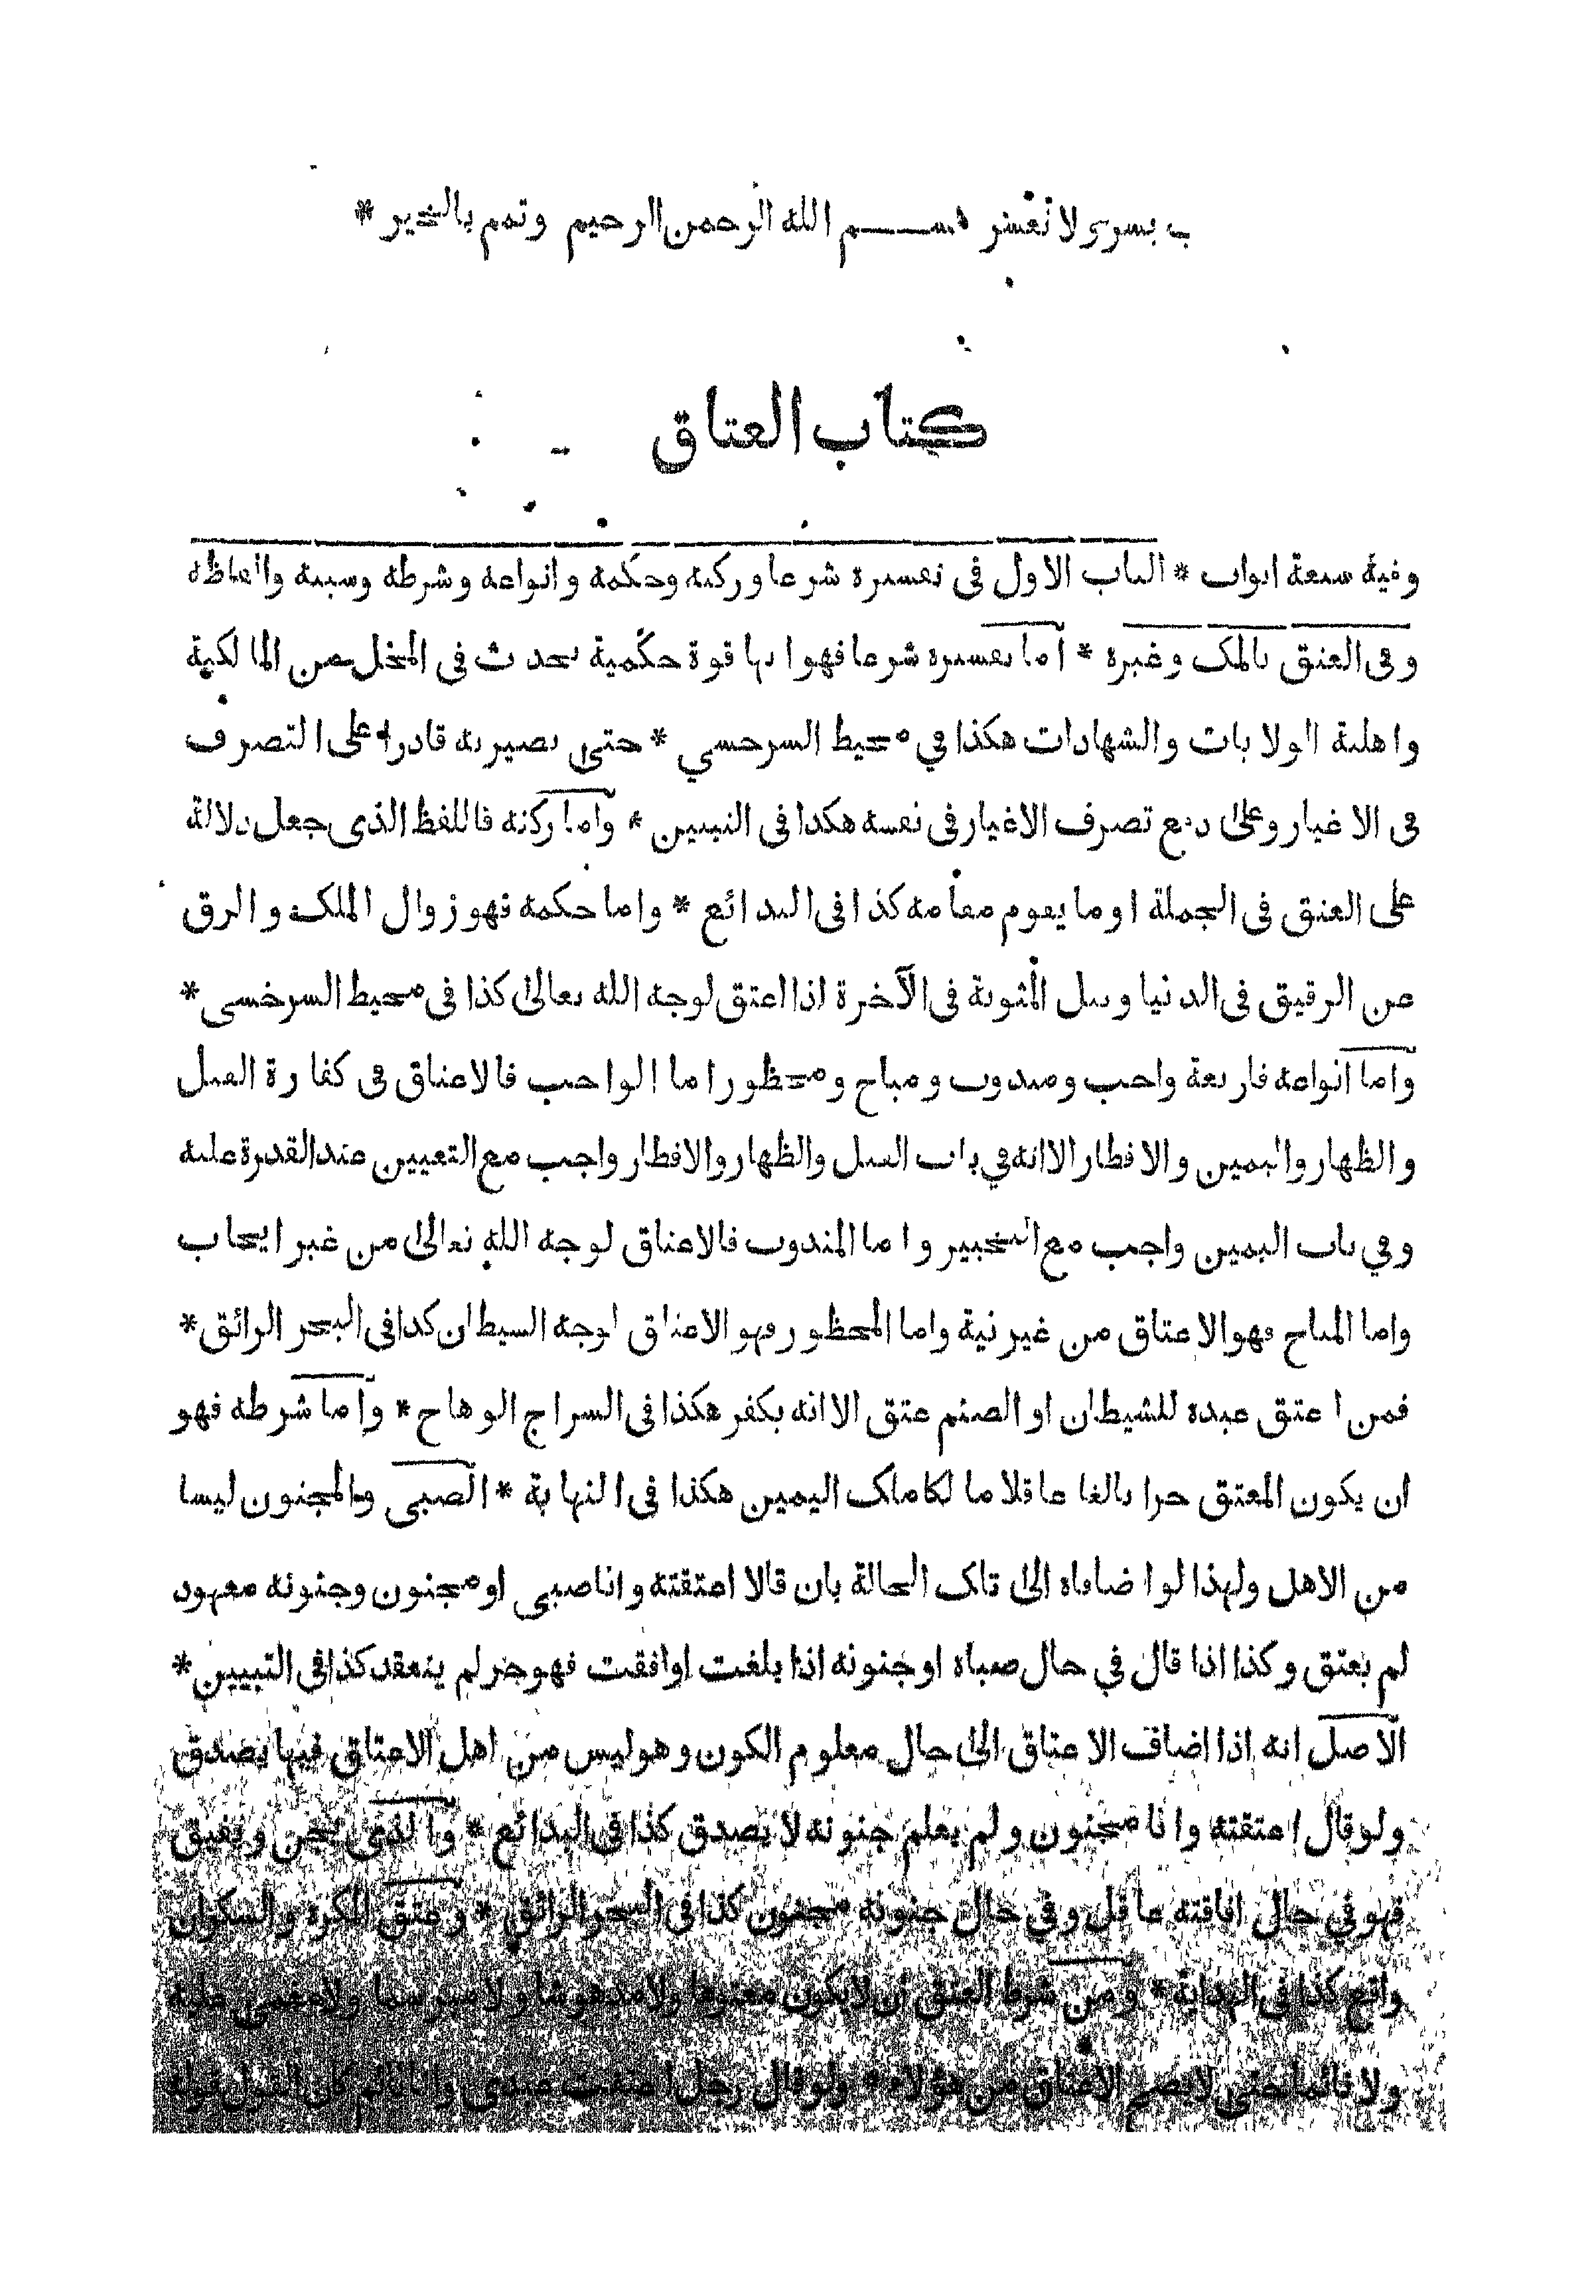 رب يسر ولا تعسر بسم الله الرحمن الرحيم وتمم بالخير *
كتاب العتاق
وفيه سبعة ابواب * الباب الاول في تفسيره شرعا وركنه وحكمه وانواعه وشرطه وسببه والفاظه
وفى العتق بالملك وغيره * اما تفسيره شرعا فهو انها قوة حكمية تحدث فى المحل من المالكية
واهلية الولايات والشهادات هكذا في محيط السرخسي * حتى يصير به قادرا على التصرف
فى الاغيار وعلى دفع تصرف الاغيار فى نفسه هكذا فى التبيين * واما ركنه فاللفظ الذى جعل دلالة
على العتق فى الجملة او ما يقوم مقامه كذا فى البدائع * واما حكمه فهو زوال الملك والرق
عن الرقيق فى الدنيا ونيل المثوبة فى الآخرة اذا اعتق لوجه الله تعالى كذا فى محيط السرخسى *
واما انواعه فاربعة واجب ومندوب ومباح ومحظور اما الواجب فالاعتاق فى كفارة القتل
والظهار واليمين والافطار الا انه في باب القتل والظهار والافطار واجب مع التعيين عند القدرة عليه
وفي باب اليمين واجب مع التخيير واما المندوب فالاعتاق لوجه الله تعالى من غير ايجاب
واما المباح فهو الاعتاق من غير نية واما المحظور فهو الاعتاق لوجه الشيطان كذا فى البحر الرائق *
فمن اعتق عبده للشيطان او الصنم عتق الا انه يكفر هكذا فى السراج الوهاج * واما شرطه فهو
ان يكون المعتق حرا بالغا عاقلا مالكا ملك اليمين هكذا فى النهاية * الصبى والمجنون ليسا
من الاهل ولهذا لو اضافاه الى تلك الحالة بان قالا اعتقته وانا صبى او مجنون وجنونه معهود
لم يعتق وكذا اذا قال في حال صباه او جنونه اذا بلغت او افقت فهو حر لم ينعقد كذا فى التبيين *
الاصل انه اذا اضاف الاعتاق الى حال معلوم الكون وهو ليس من اهل الاعتاق فيها يصدق
ولو قال اعتقته وانا مجنون ولم يعلم جنونه لا يصدق كذا فى البدائع * والذى يجن ويفيق
فهو في حال افاقته عاقل وفي حال جنونه مجنون كذا فى البحر الرائق * وعتق المكره والسكران
واقع كذا فى الهداية * ومن شرط العتق ان لا يكون معتوها ولا مدهوشا ولا مبرسما ولا مغمى عليه
ولا نائما حتى لا يصح الاعتاق من هؤلاء * ولو قال رجل اعتقت عبدى وانا نائم كان القول قوله